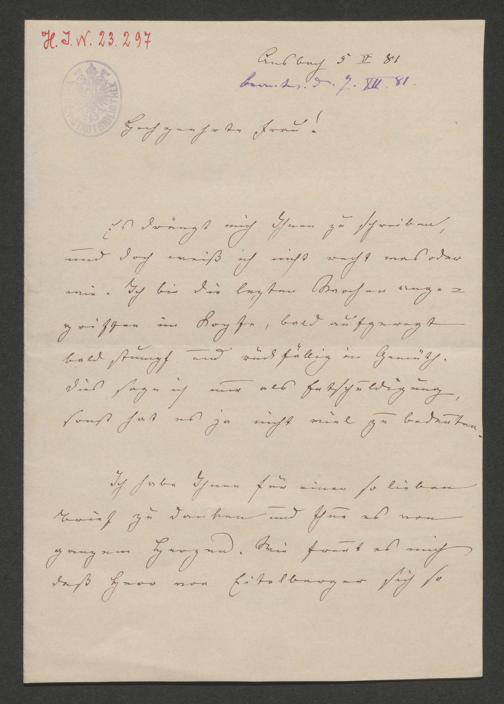 H. I. N. 23.297
Ansbach 5 81
beantw. d. 7. XII. 81.
Hochgeehrte Frau!
Es drängt mich Ihnen zu schreiben,
und doch weiß ich nicht recht was oder
wie. Ich bin die letzten Wochen ange=
griffen im Kopfe, bald aufgeregt
bald stumpf und rückfällig im Gemüth.
Dies sage ich nur als Entschuldigung,
sonst hat es ja nicht viel zu bedeuten.
Ich habe Ihnen für einen so lieben
Brief zu danken und thue es von
ganzem Herzen. Wie freut es mich
daß Herr von Eitelberger sich so